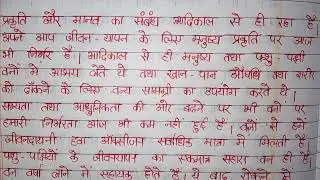 प्रकृति और मानव का संबंध आदिकाल से ही रहा है
अपने आप जीवन-यापन के लिए मनुष्य प्रकृति पर आज
भी निर्भर है। आदिकाल से ही मनुष्य तथा पशु-पक्षी
वनों में आश्रय लेते थे तथा खान-पान औषधि तथा शरीर
को ढांकने के लिए वन्य सामग्री का उपयोग करते थे।
सभ्यता तथा आधुनिकता की ओर बढ़ने पर भी वनों पर
हमारी निर्भरता आज भी कम नहीं हुई है। वनों से हमें
जीवनदायनी हवा ऑक्सीजन सर्वाधिक मात्रा में मिलती है।
पशु-पक्षियों के जीवनयापन का एकमात्र सहारा वन ही है।
वन वर्षा लाने में सहायक होते हैं ये बाढ़ रोकने में